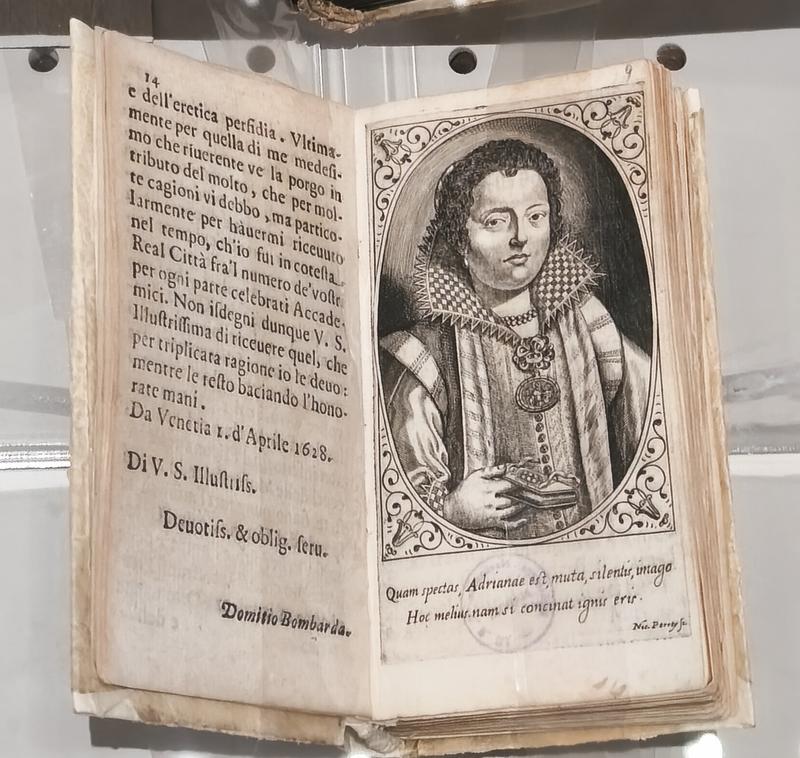 14
e dell'eretica perfidia. Vltima-
mente per quella di me medesi-
mo che riuerente ve la porgo in
tributo del molto, che per mol-
te cagioni vi debbo, ma partico-
larmente per hauermi riceuuto
nel tempo, ch'io fui in cotesta
Real Città fra'l numero de'vostri
per ogni parte celebrati Accade-
mici. Non isdegni dunque V. S.
Illustrissima di riceuere quel, che
per triplicata ragione io le deuo:
mentre le resto baciando l'hono-
rate mani.
Da Venetia 1. d'Aprile 1628.
Di V. S. Illustriss.
Deuotiss. & oblig. seru.
Domitio Bombarda.
9
Quam spectas, Adrianae est, muta, silentis, imago
Hoc melius. nam si concinat ignis eris.
Nic. Perrey fc.